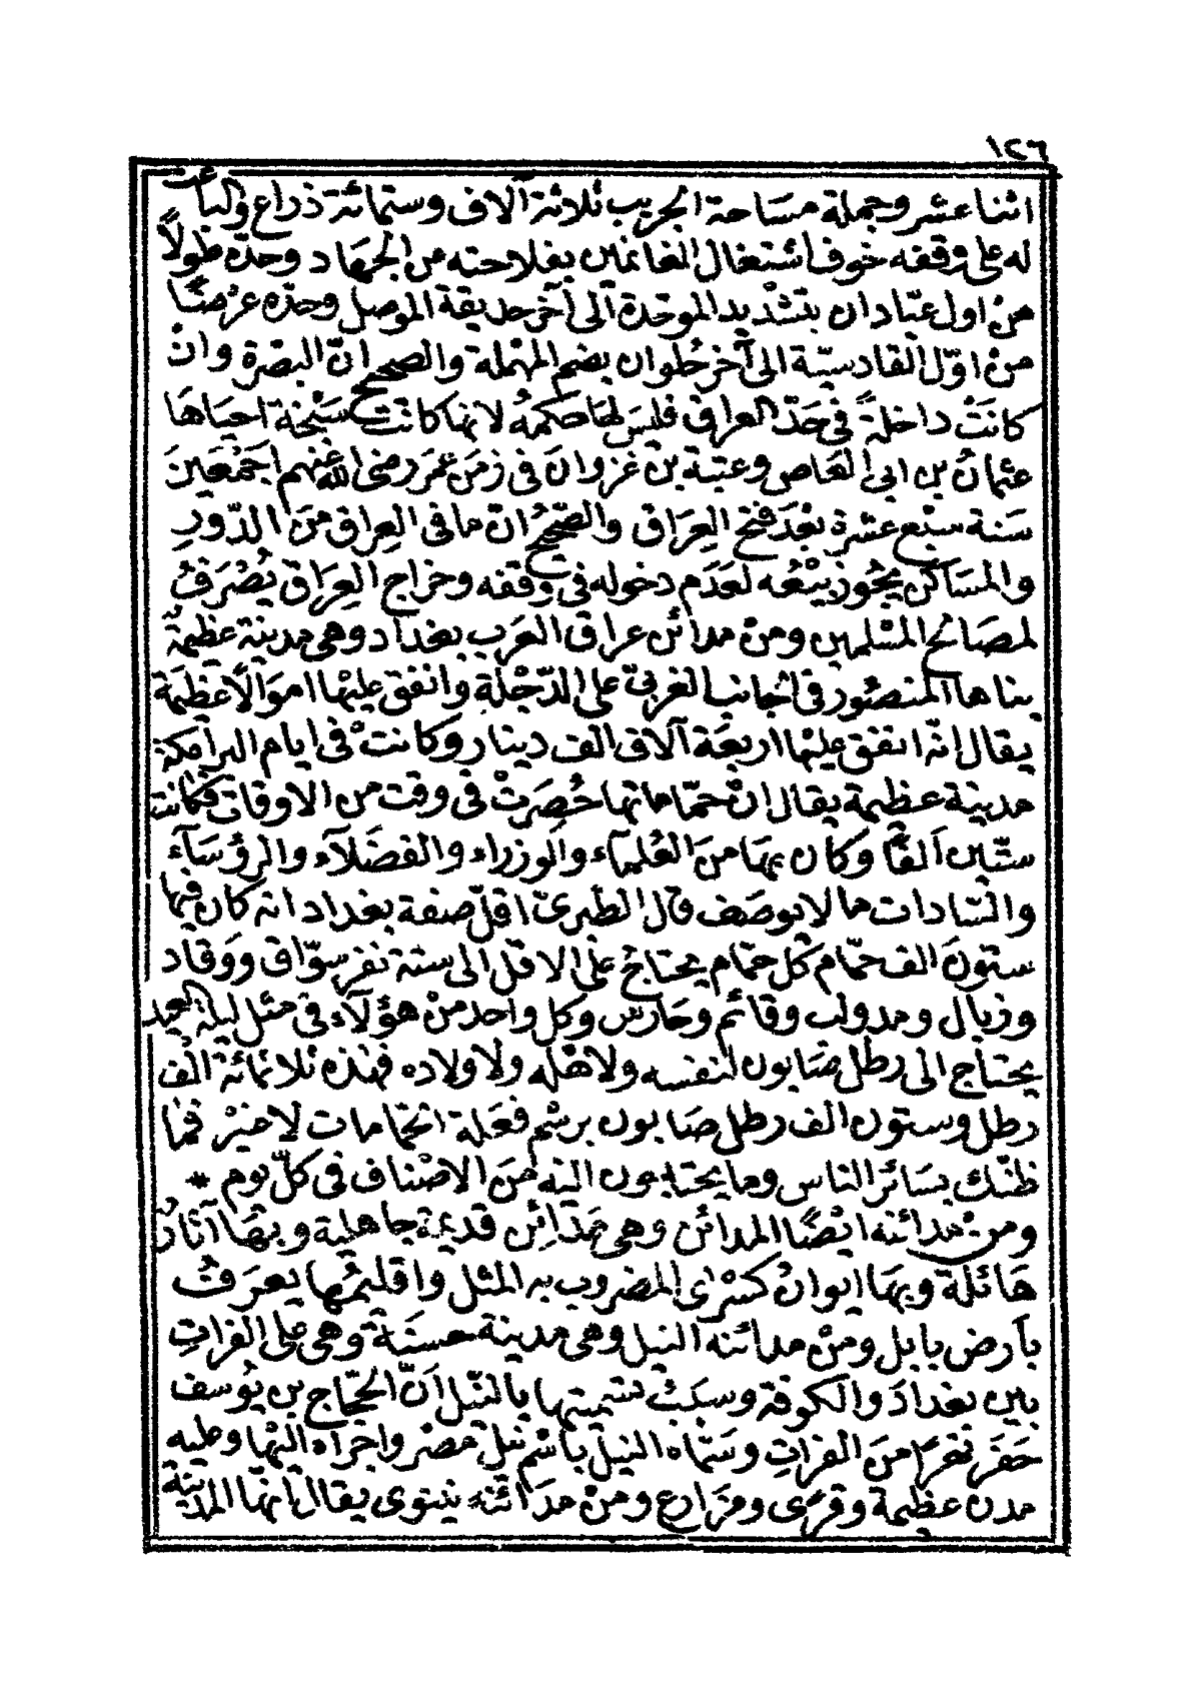 ١٢٦
اثنا عشر وجملة مساحة الجريب ثلاثة آلاف وستمائة ذراع والباعث
له على وقفه خوف اشتغال الغانمين بفلاحته من الجهاد وحدّه طولاً
من اول عبّادان بتشديد الموحّدة الى آخر حديقة الموصل وحدّه عرضًا
من اوّل القادسيّة الى آخر حُلوان بضم المهملة والصحيح انّ البصرة وانْ
كانَتْ داخلةً في حَدّ العراق فليسَ لها حكمهُ لانها كانتْ سَبْخة احياهَا
عثمانُ بن ابي العَاص وعتبة بن غزوانَ في زمَن عمَر رضى الله عنهم اجمَعينَ
سَنة سبْع عشرة بعْدَ فتح العِرَاق والصّحيحُ انّ ما في العِراق منَ الدّورِ
والمسَاكن يجُوز بيْعُه لعَدَم دخوله في وقفه وخراج العِرَاق يُصْرَفُ
لمصَالح المسْلمين ومنْ مدائن عراق العَرَب بغداد وهى مدينة عظيمةٌ
بناها المنصُور في الجانب الغربيّ على الدّجْلة وانفق عليْها اموَالاً عظيمَة
يقال إنّه انفق عليْها اربعَة آلاف الف دينار وكانتْ في ايام البرامكة
مدينة عظيمة يقال إنّ حمّاماتها حُصِرَتْ في وقت من الاوقات فكانت
ستّين اَلفًا وكان بهَا منَ العُلمآء والوزراء والفضَلآء والرؤسَآء
والسّادات ما لا يوصَف قال الطبرىّ اقلّ صفة بغداد انه كان فيها
ستّونَ الف حمّام كلّ حمّام يحتاجُ على الاقل الى ستة نفر سوّاق ووقاد
وزبال ومدولب وقائم وحَارس وكل واحد منْ هؤلآء في مثل ليلة العيد
يحتاج الى رطل صَابون لنفسه ولاهْله ولاولاده فهذه ثلاثمائة الْف
رطل وستون الف رطل صَابون برسْم فعَلة الحمّامات لا غيرْ فما
ظنّك بسَائر الناس وما يحتاجون اليْه منَ الاصْناف في كلّ يوم *
ومنْ مدائنه ايْضًا المدائن وهى مَدَائِن قديمة جاهلية وبهَا آثارُ
هَائلة وبهَا ايوانُ كسْرَى المضروب به المثل واقليمُها يعرَفُ
بأرض بابل ومنْ مدائنه النيل وهى مدينة حسنَة وهى على الفراتِ
بين بغدادَ والكوفة وسبَبُ تسْميتها بالنّيل اَنّ الحجّاج بن يوُسف
حَفَر نهرًا منَ الفراتِ وسَمّاه النيل باسْم نيل مصْر واجراه اليْها وعليه
مدن عظيمة وقرًى ومَزارع ومنْ مدَائنه نينوى يقال انها المدينة